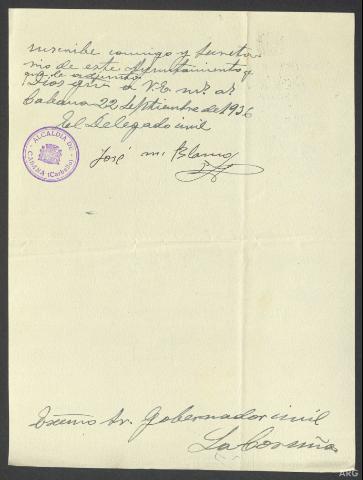 suscribe conmigo y Secreta-
rio de este Ayuntamiento y
que le adjunto
Dios gue a V.E. ms. as.
Cabana 22 Septiembre de 1936
El Delegado civil
José Mª Blanco
ALCALDÍA DE CABANA (Carballo)
Excmo Sr. Gobernador civil
La Coruña
ARG